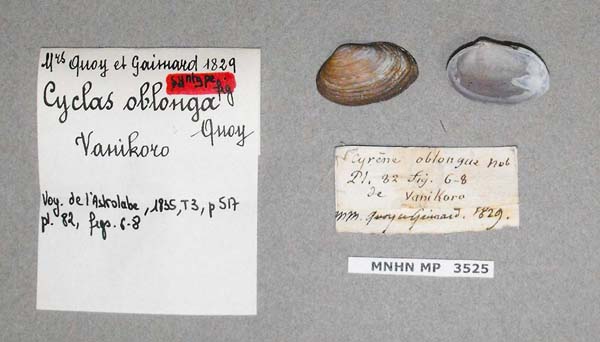 Mrs Quoy et Gaimard 1829
syntype
fig
Cyclas oblonga
Quoy
Vanikoro
Voy. de l'Astrolabe, 1835, T3, p 517
pl. 82, figs. 6-8
Cyrène oblongue Nob
Pl. 82 fig. 6-8
de Vanikoro
MM. Quoy et Gaimard. 1829.
MNHN MP 3525